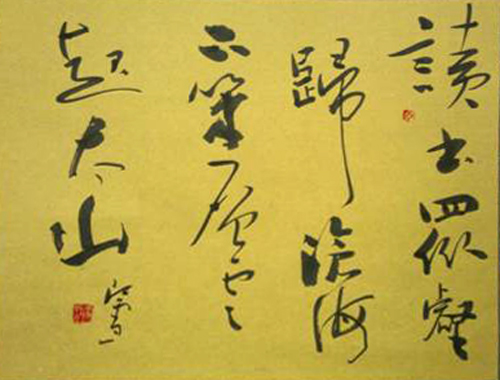 讀书眾壑
歸滄海
下筆層云
起太山